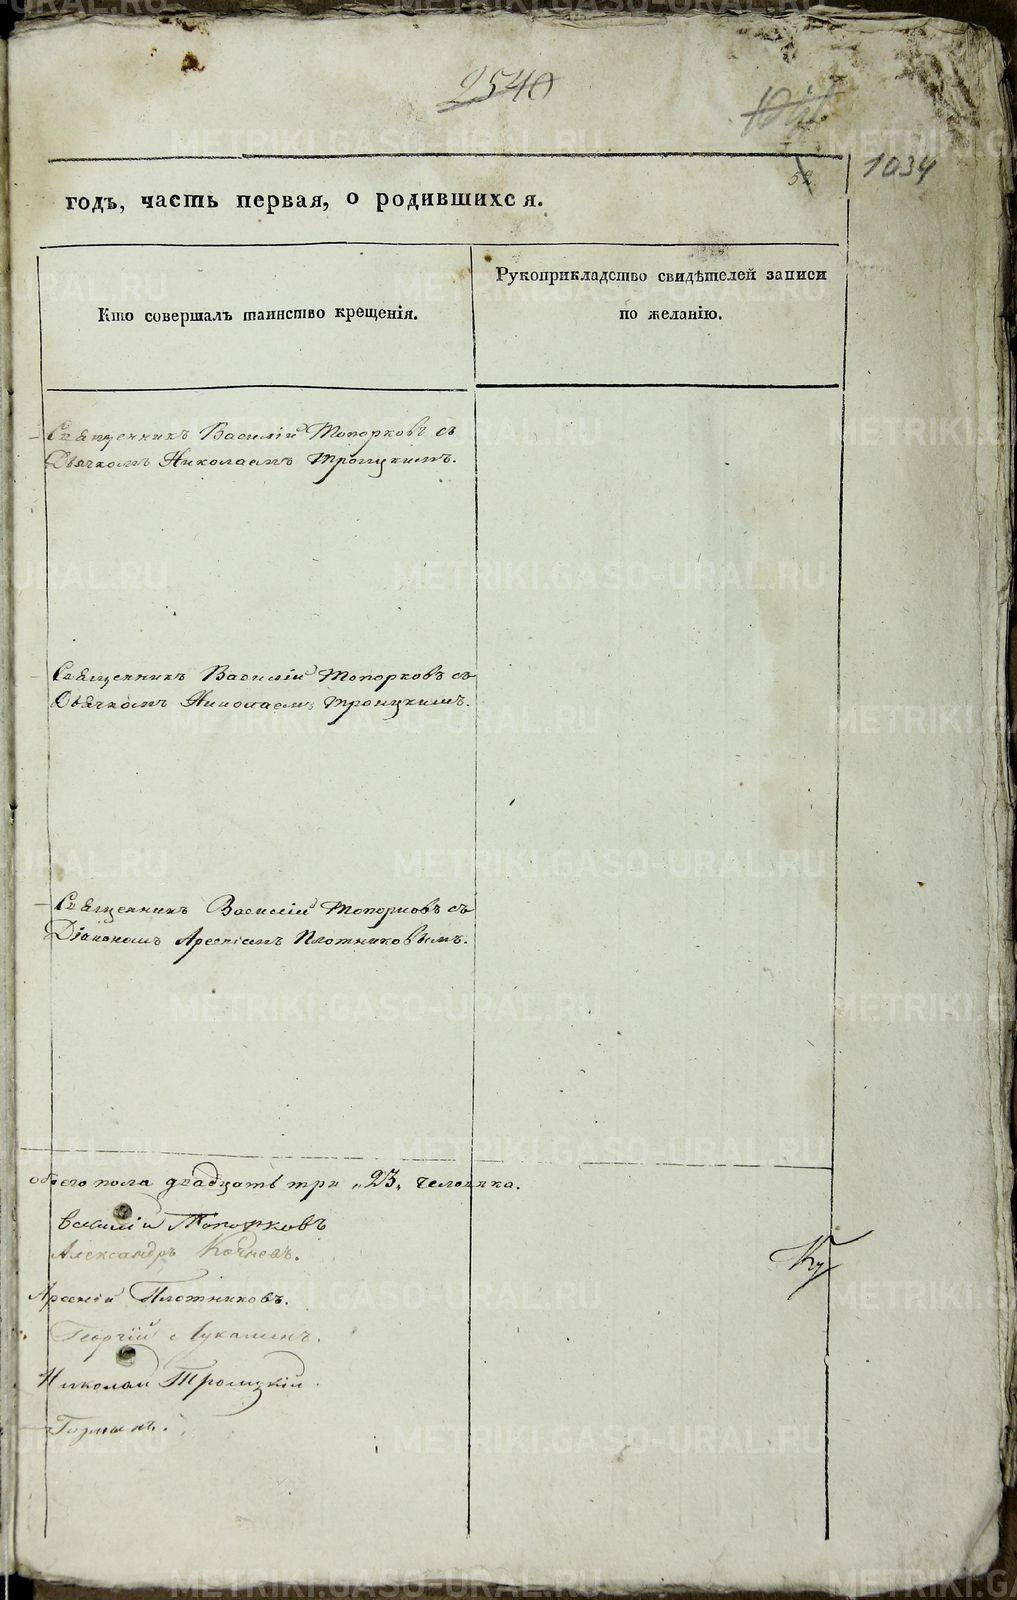 2540
52
1034
годъ, часть первая, о родившихся.
Кто совершалъ таинство крещенія.
Рукоприкладство свидѣтелей записи
по желанію.
Священникъ Василій Топорковъ съ
Дьячкомъ Николаемъ Троицкимъ.
Священникъ Василій Топорковъ съ
Дьячкомъ Николаемъ Троицкимъ.
Священникъ Василій Топорковъ съ
Діакономъ Арсеніемъ Плотниковымъ.
обоего пола двадцать три „23„ человѣка.
Василій Топорковъ
Александръ
Арсеній Плотниковъ.
Георгій Лукашинъ.
Николай Троицкій.
METRIKI.GASO-URAL.RU